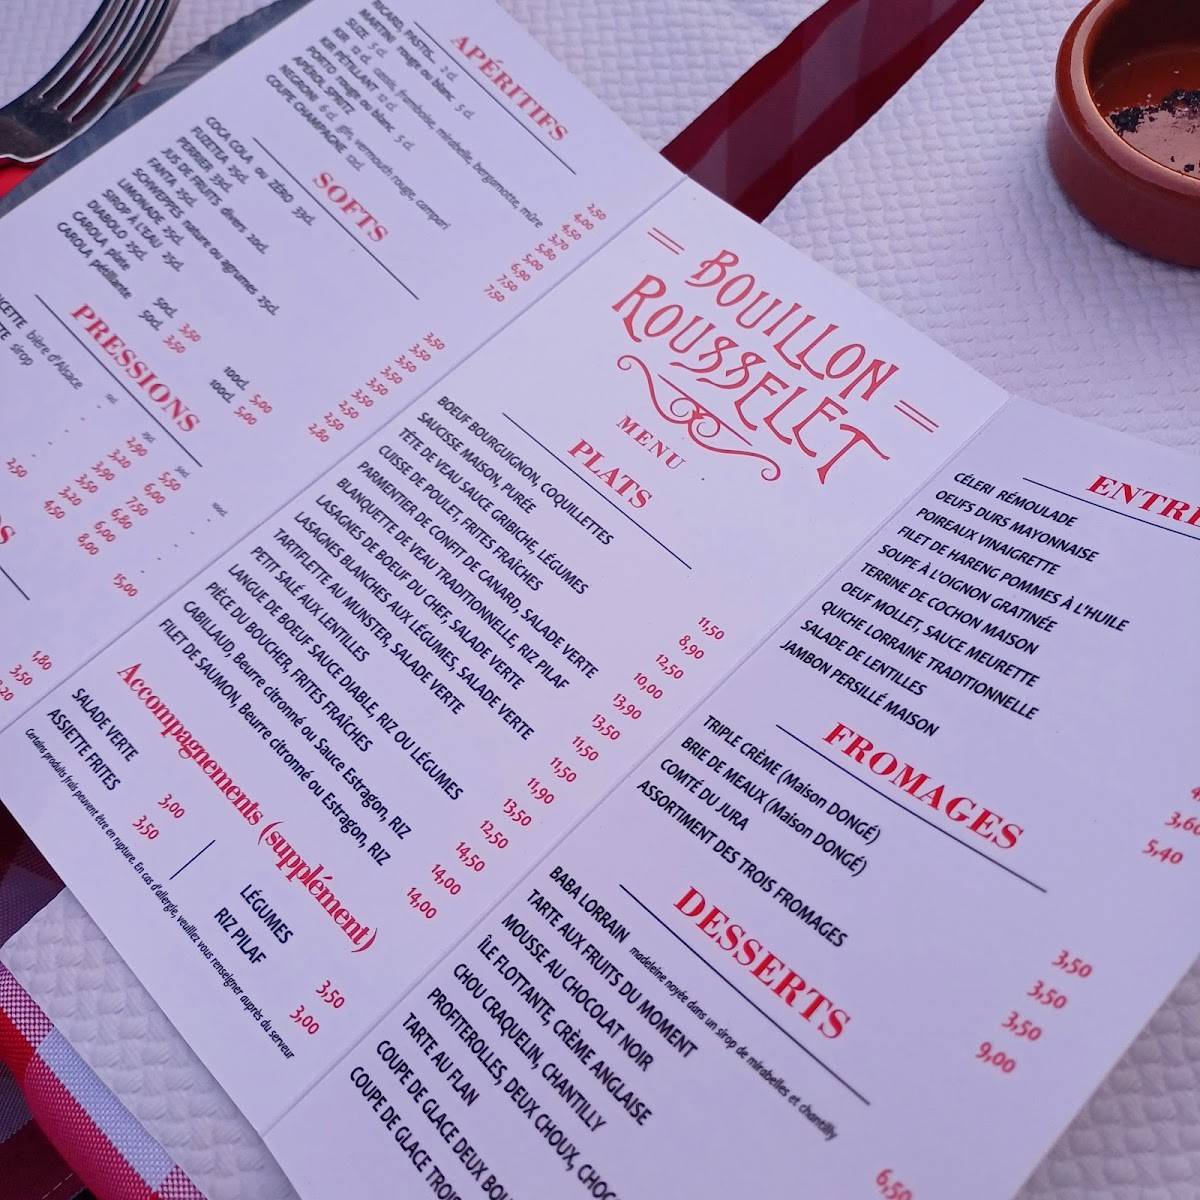 APÉRITIFS
RICARD, PASTIS... 2 cl. 2,50
MARTINI rouge ou blanc 5 cl. 4,00
SUZE 5 cl. 4,50
KIR 12 cl. cassis, framboise, mirabelle, bergamotte, mûre 3,70
KIR PÉTILLANT 12 cl. 5,80
PORTO rouge ou blanc 5 cl. 5,00
APÉROL SPRITZ 6,90
NEGRONI 6 cl. gin, vermouth rouge, campari 7,50
COUPE CHAMPAGNE 12cl. 7,50
SOFTS
COCA COLA ou ZÉRO 33cl. 3,50
FUZETEA 25cl. 3,50
PERRIER 33cl. 3,50
JUS DE FRUITS divers 20cl. 3,50
FANTA 25cl. 3,50
SCHWEPPES nature ou agrumes 25cl. 3,50
LIMONADE 25cl. 2,50
SIROP À L'EAU 25cl. 2,50
DIABOLO 25cl. 2,80
CAROLA plate 50cl. 3,50 100cl. 5,00
CAROLA pétillante 50cl. 3,50 100cl. 5,00
PRESSIONS
bière d'Alsace
sirop
2,90 5,50
3,20 6,00
3,90 7,50
3,50 6,80
3,20 6,00
2,50 4,50 8,00 15,00
1,80
3,50
BOUILLON
ROUSSELET
MENU
PLATS
BOEUF BOURGUIGNON, COQUILLETTES 11,50
SAUCISSE MAISON, PURÉE 8,90
TÊTE DE VEAU SAUCE GRIBICHE, LÉGUMES 12,50
CUISSE DE POULET, FRITES FRAÎCHES 10,00
PARMENTIER DE CONFIT DE CANARD, SALADE VERTE 13,90
BLANQUETTE DE VEAU TRADITIONNELLE, RIZ PILAF 13,50
LASAGNES DE BOEUF DU CHEF, SALADE VERTE 11,50
LASAGNES BLANCHES AUX LÉGUMES, SALADE VERTE 11,50
TARTIFLETTE AU MUNSTER, SALADE VERTE 11,90
PETIT SALÉ AUX LENTILLES 13,50
LANGUE DE BOEUF SAUCE DIABLE, RIZ OU LÉGUMES 12,50
PIÈCE DU BOUCHER, FRITES FRAÎCHES 14,50
CABILLAUD, Beurre citronné ou Sauce Estragon, RIZ 14,00
FILET DE SAUMON, Beurre citronné ou Estragon, RIZ 14,00
Accompagnements (supplément)
SALADE VERTE 3,00
ASSIETTE FRITES 3,50
LÉGUMES 3,50
RIZ PILAF 3,00
Certains produits frais peuvent être en rupture. En cas d'allergie, veuillez vous renseigner auprès du serveur
CÉLERI RÉMOULADE
OEUFS DURS MAYONNAISE
POIREAUX VINAIGRETTE
FILET DE HARENG POMMES À L'HUILE
SOUPE À L'OIGNON GRATINÉE
TERRINE DE COCHON MAISON
OEUF MOLLET, SAUCE MEURETTE
QUICHE LORRAINE TRADITIONNELLE
SALADE DE LENTILLES
JAMBON PERSILLÉ MAISON 5,40
FROMAGES
TRIPLE CRÈME (Maison DONGÉ) 3,50
BRIE DE MEAUX (Maison DONGÉ) 3,50
COMTÉ DU JURA 3,50
ASSORTIMENT DES TROIS FROMAGES 9,00
DESSERTS
BABA LORRAIN madeleine noyée dans un sirop de mirabelles et chantilly 6,50
TARTE AUX FRUITS DU MOMENT
MOUSSE AU CHOCOLAT NOIR
ÎLE FLOTTANTE, CRÈME ANGLAISE
CHOU CRAQUELIN, CHANTILLY
PROFITEROLES, DEUX CHOUX,
TARTE AU FLAN
COUPE DE GLACE DEUX
COUPE DE GLACE